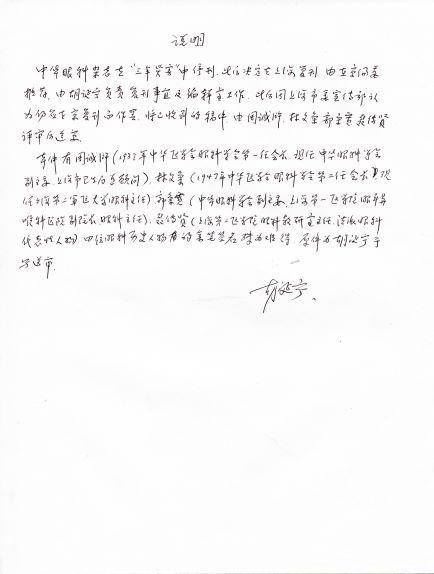 说明
中华眼科杂志在“三年灾害”中停刊，此后决定在上海复刊，由
推荐，由胡延宁负责复刊事宜及编辑室工作。此后因上海市委宣传部认
为仍应在京复刊而作罢。惟已收到的稿件由周诚浒，林文秉，郭秉宽，聂传贤
评审后送京。
寄件有周诚浒（1937年中华医学会眼科学会第一任会长，现任中华眼科学会
副主委，上海市卫生局顾问），林文秉（1947年中华医学会眼科学会第二任会长，现
任上海第二军医大学眼科主任）郭秉宽（中华眼科学会副主委，上海第一医学院眼耳鼻
喉科医院副院长眼科主任），聂传贤（上海第二医学院眼科教研室主任，法派眼科
代表性人物）四位眼科历史人物的亲笔签名殊为难得。原件为胡延宁手
写送审。
胡延宁